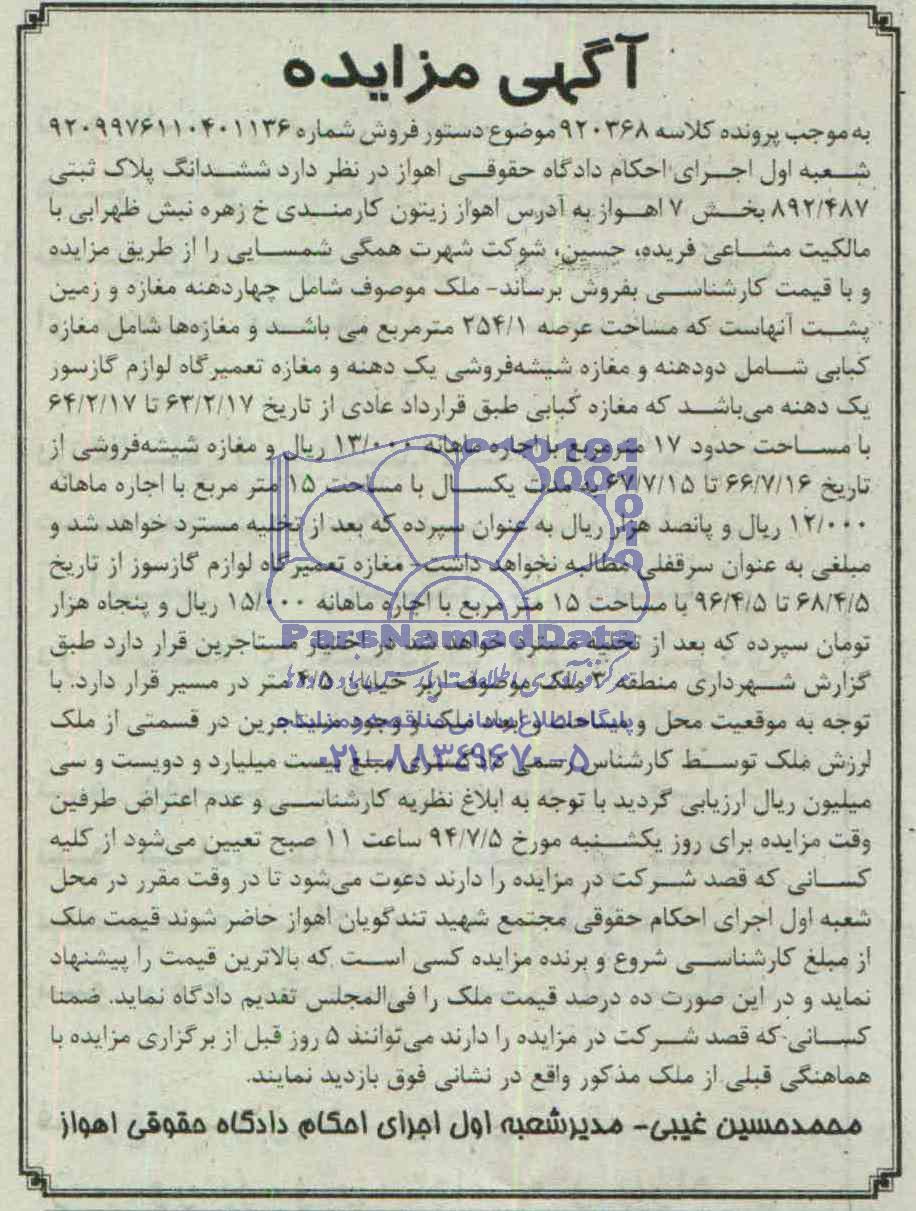 آگهی مزایده
به موجب پرونده کلاسه ۹۲۰۳۶۸ موضوع دستور فروش شماره ۹۲۰۹۹۷۶۱۱۰۴۰۱۱۳۶
شعبه اول اجرای احکام دادگاه حقوقی اهواز در نظر دارد ششدانگ پلاک ثبتی
۸۹۲/۴۸۷ بخش ۷ اهواز به آدرس اهواز زیتون کارمندی خ زهره نبش ظهرابی با
مالکیت مشاعی فریده، حسین، شوکت شهرت همگی شمسایی را از طریق مزایده
و با قیمت کارشناسی بفروش برساند- ملک موصوف شامل چهاردهنه مغازه و زمین
پشت آنهاست که مساحت عرصه ۲۵۴/۱ مترمربع می باشد و مغازه‌ها شامل مغازه
کبابی شامل دودهنه و مغازه شیشه‌فروشی یک دهنه و مغازه تعمیرگاه لوازم گازسور
یک دهنه می‌باشد که مغازه کبابی طبق قرارداد عادی از تاریخ ۶۳/۲/۱۷ تا ۶۴/۲/۱۷
با مساحت حدود ۱۷ مترمربع با اجاره ماهانه ۱۳/۰۰۰ ریال و مغازه شیشه‌فروشی از
تاریخ ۶۶/۷/۱۶ تا ۶۷/۷/۱۵ به مدت یکسال با مساحت ۱۵ متر مربع با اجاره ماهانه
۱۲/۰۰۰ ریال و پانصد هزار ریال به عنوان سپرده که بعد از تخلیه مسترد خواهد شد و
مبلغی به عنوان سرقفلی مطالبه نخواهد داشت- مغازه تعمیرگاه لوازم گازسوز از تاریخ
۶۸/۴/۵ تا ۹۶/۴/۵ با مساحت ۱۵ متر مربع با اجاره ماهانه ۱۵/۰۰۰ ریال و پنجاه هزار
تومان سپرده که بعد از تخلیه مسترد خواهد شد در اختیار مستاجرین قرار دارد طبق
گزارش شهرداری منطقه ۳ ملک موصوف از بر خیابان ۴/۵ متر در مسیر قرار دارد. با
توجه به موقعیت محل و مساحت و ابعاد ملک و وجود مستاجرین در قسمتی از ملک
ارزش ملک توسط کارشناس رسمی دادگستری مبلغ بیست میلیارد و دویست و سی
میلیون ریال ارزیابی گردید با توجه به ابلاغ نظریه کارشناسی و عدم اعتراض طرفین
وقت مزایده برای روز یکشنبه مورخ ۹۴/۷/۵ ساعت ۱۱ صبح تعیین می‌شود از کلیه
کسانی که قصد شرکت در مزایده را دارند دعوت می‌شود تا در وقت مقرر در محل
شعبه اول اجرای احکام حقوقی مجتمع شهید تندگویان اهواز حاضر شوند قیمت ملک
از مبلغ کارشناسی شروع و برنده مزایده کسی است که بالاترین قیمت را پیشنهاد
نماید و در این صورت ده درصد قیمت ملک را فی‌المجلس تقدیم دادگاه نماید. ضمنا
کسانی که قصد شرکت در مزایده را دارند می‌توانند ۵ روز قبل از برگزاری مزایده با
هماهنگی قبلی از ملک مذکور واقع در نشانی فوق بازدید نمایند.
محمدحسین غیبی- مدیرشعبه اول اجرای احکام دادگاه حقوقی اهواز
ParsNamadData
پایگاه اطلاع رسانی مناقصه و مزایده
۰۲۱-۸۸۳۴۹۶۷۰-۵